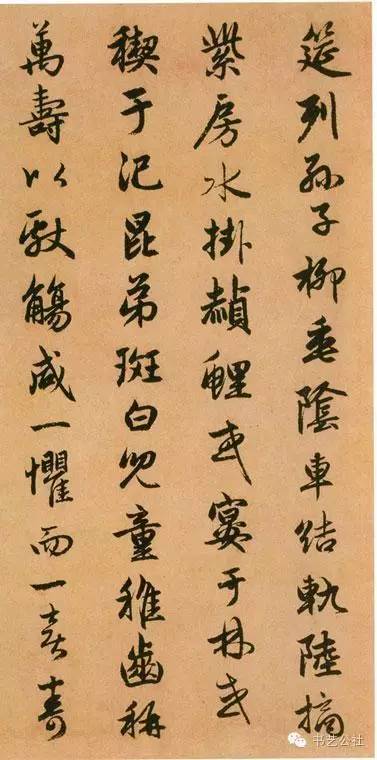 筵列孫子柳垂陰車結軌陸摘
紫房水掛赬鯉或宴于林或
禊于汜昆弟斑白兒童稚齒稱
萬壽以獻觴咸一懼而一喜壽
书艺公社